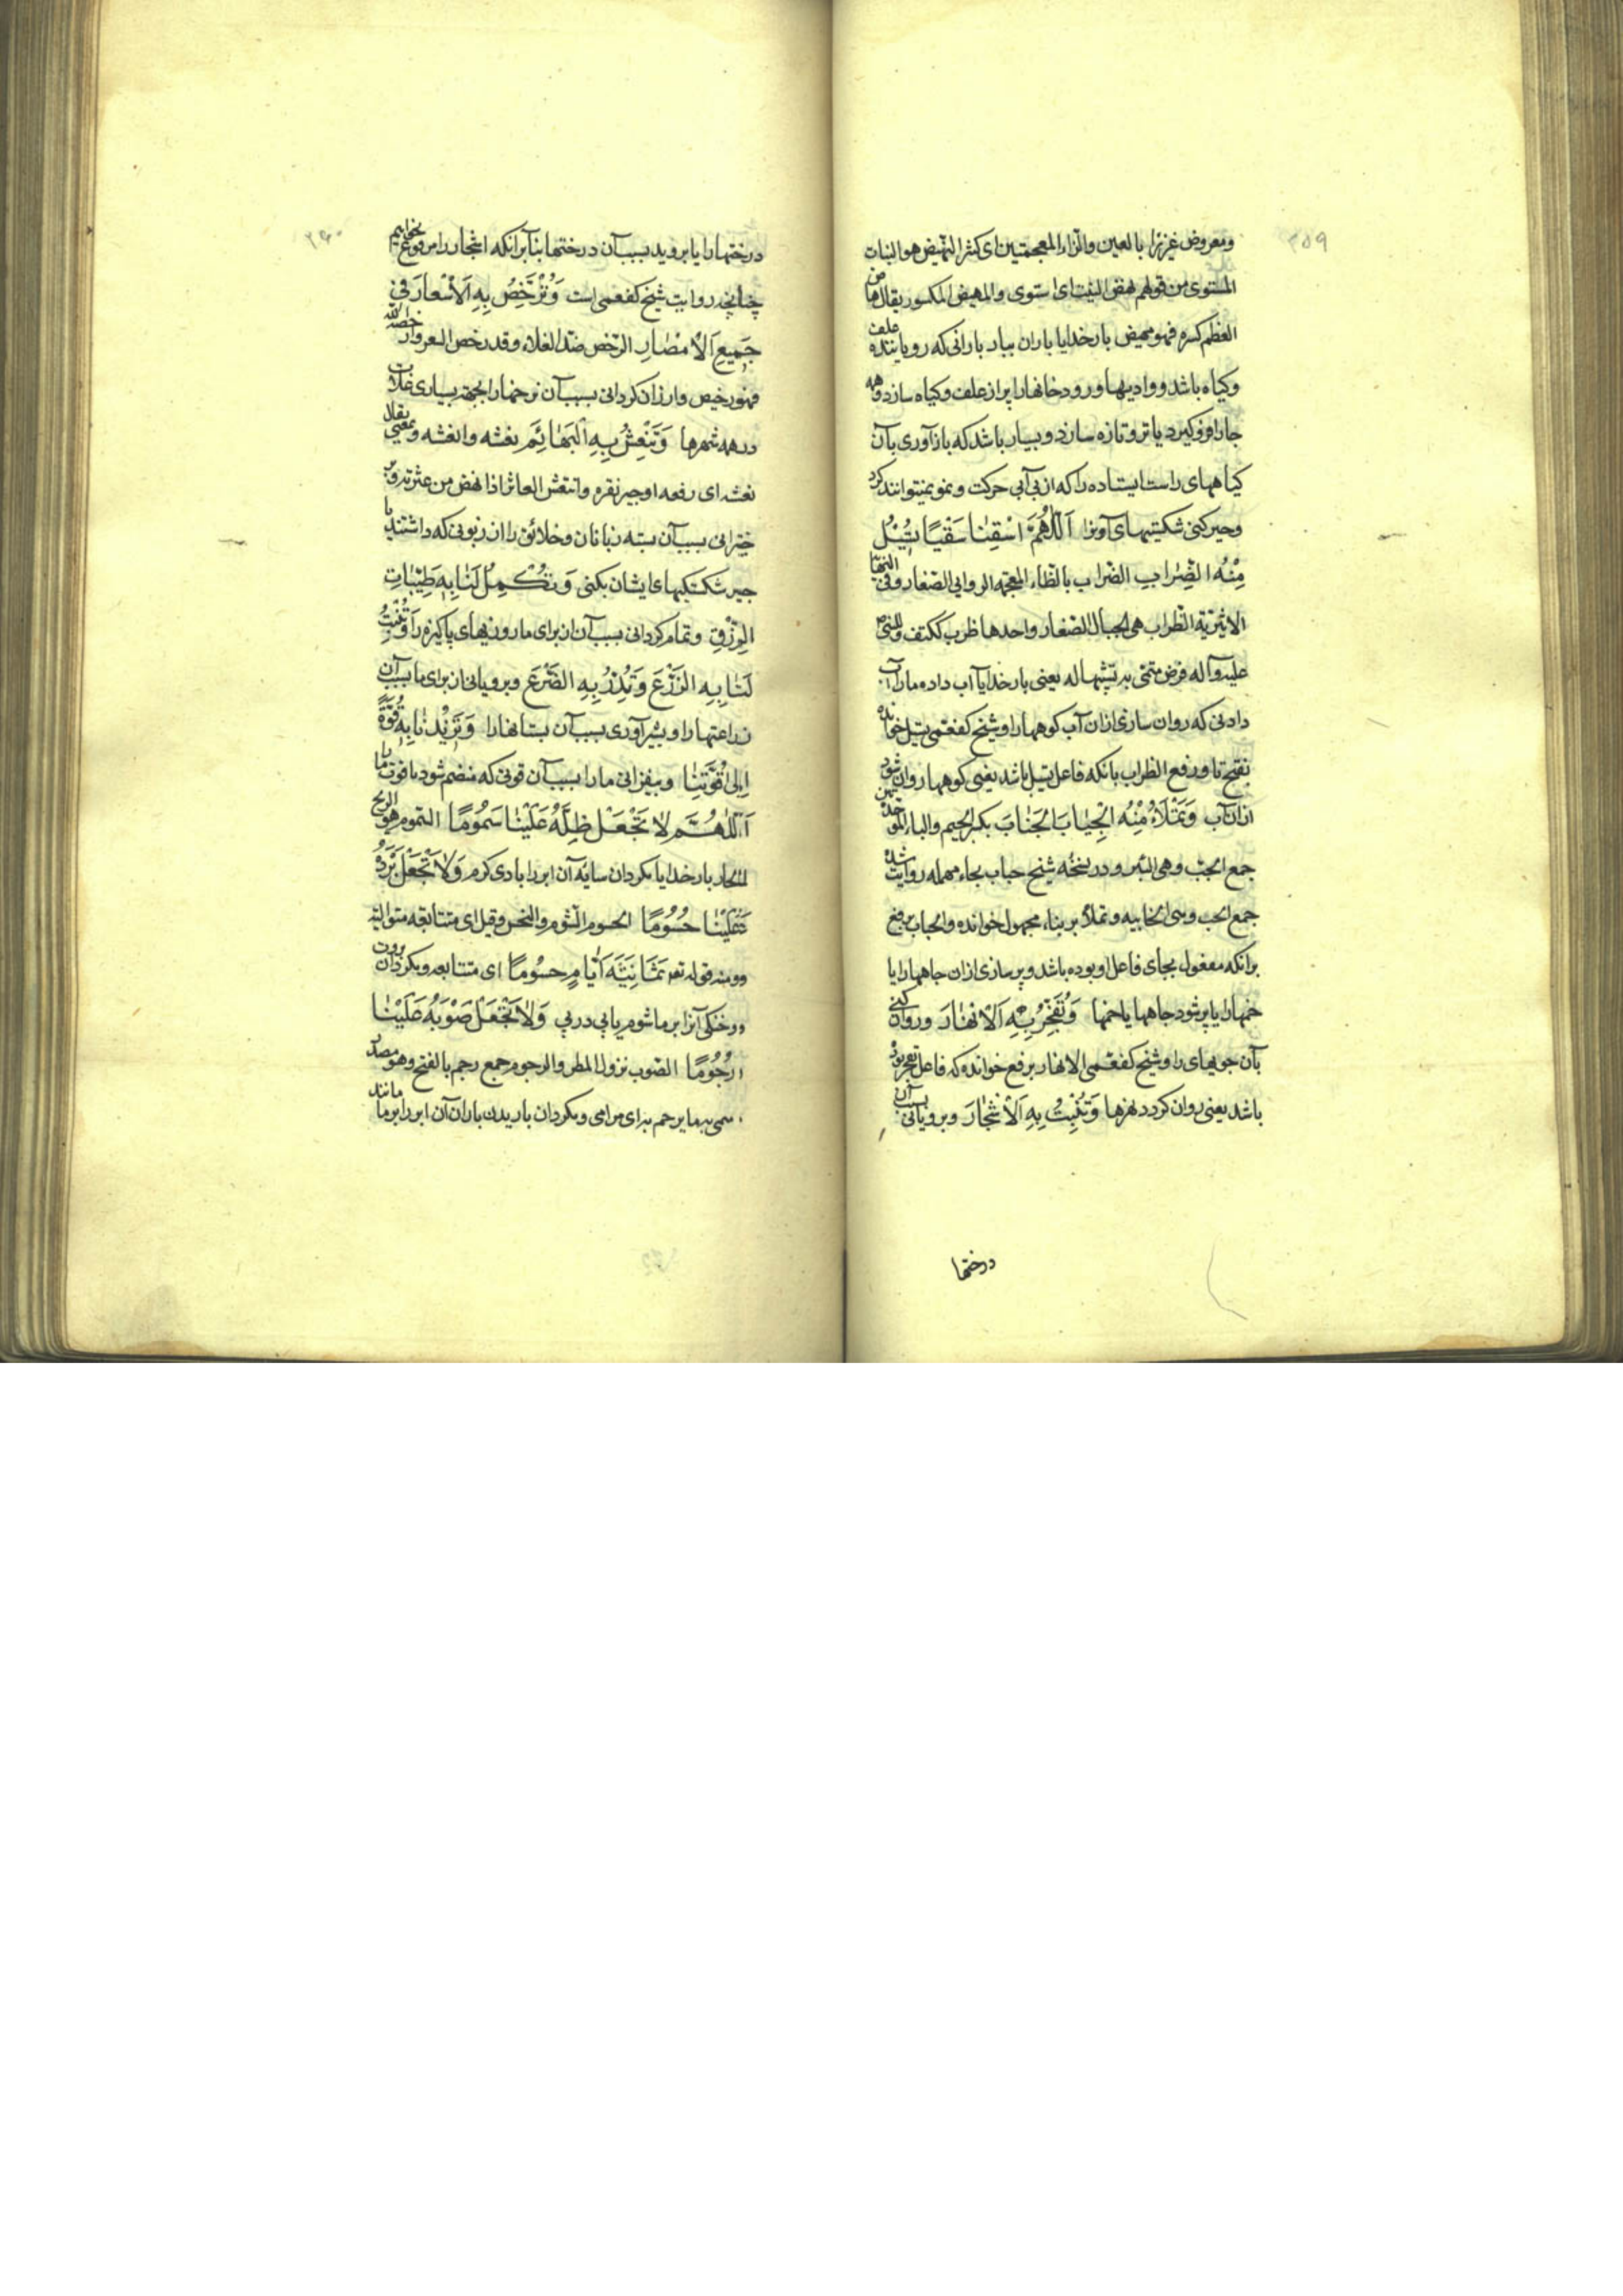 ۳۵۹
ومعروض غزیزا بالعین والزاء المعجمتین ای کثیرا النهیض هو النبات
المستوی من قولهم نهض النبت ای استوی والمهیض المکسور یقال هاض
العظم کسره فهو مهیض بار خدایا باران ببار بارانی که رویاننده علف
وکیاه باشد ووادیها ورودخانها را پر از علف وکیاه سازد وهمه
جا را فرو کیرد یا تر وتازه سازد وبسیار باشد که باز آوری بآن
کیاههای راست ایستاده را که از بی آبی حرکت ونمو نمیتوانند کرد
وجبر کنی شکستهای آنرا اَللّٰهُمَّ اسْقِنٰا سَقْیًا تُسِیْلُ
مِنْهُ الضِّرٰابِ الضراب بالظاء المعجمة الروابی الصغار وفی النهایة
الاثیریة الظراب هی الجبال الصغار واحدها ظرب ککتف
علیه وآله یعنی بار خدایا آب داده ما را آب
دادنی که روان سازی ازان آب کوهها را وشیخ کفعمی تسیل خوانده
بفتح تا ورفع الظراب بانکه فاعل تسیل باشد یعنی کوهها روان شود
ازان آب وَتَمْلَاءُ مِنْهُ الْجِبٰابَ الجباب بکسر الجیم والباء الموحدة
جمع الجب وهی البئر ودر نسخه شیخ حباب بحاء مهمله روایت شده
جمع الحب وهی الخابیه وتملأ بر بناء مجهول خوانده والحباب برفع
برانکه مفعول بجای فاعل او بوده باشد وپر سازی ازان چاهها را یا
خمها را یا پر شود چاهها یا خمها وَتُفَجِّرُ بِهِ اَلْاَنْهٰارَ وروان کنی
بآن جویهای را وشیخ کفعمی الانهار برفع خوانده که فاعل تفجر بوده
باشد یعنی روان کردد نهرها وَتُنْبِتُ بِهِ اَلْاَشْجٰارَ وبرویانی بسبب آن
درختها
۳۶۰
درختها را یا بروید بسبب آن درختها بنابرانکه اشجار را مرفوع بخوانیم
چنانچه روایت شیخ کفعمی است وَتُرَخِّصُ بِهِ اَلْاَسْعٰارَ فِی
جَمِیعِ اَلْاَمْصٰارِ الرخص ضد الغلاء وقد رخص السعر وارخصه الله
فهو رخیص وارزان کردانی بسبب آن نرخها را بجهة بسیاری غلات
در همه شهرها وَتَنْعَشُ بِهِ اَلْبَهٰائِمَ نعشه وانعشه بمعنی یقال
نعشه ای رفعه او جبر فقره وانتعش العاثر اذا نهض من عثرته وبر
خیزانی بسبب آن بسته زبانان وخلائق را از زبونی که داشتند یا
جبر شکستکیهای ایشان بکنی وَتُکْمِلُ لَنٰا بِهِ طَیِّبٰاتِ
الرِّزْقِ وتمام کردانی بسبب آن از برای ما روزیهای پاکیزه را وَتُنْبِتُ
لَنٰا بِهِ الزَّرْعَ وَتُدِرُّ بِهِ الضَّرْعَ وبرویانی از برای ما بسبب آن
زراعتها را وبشیر آوری بسبب آن پستانها را وَتَزِیْدُنٰا بِهِ قُوَّةً
اِلیٰ قُوَّتِنٰا وبیفزایی ما را بسبب آن قوتی که منضم شود با قوت ما
اَللّٰهُمَّ لٰا تَجْعَلْ ظِلَّهُ عَلَیْنٰا سَمُومًا السموم هو الریح
الحار بار خدایا مکردان سایه آن ابر را بادی کرم وَلٰا تَجْعَلْ بَرْدَهُ
عَلَیْنٰا حُسُومًا الحسوم الشوم والنحس وقیل ای متتابعه متوالیه
ومنه قوله تع ثَمٰانِیَةَ اَیّٰامٍ حُسُومًا ای متتابعه ومکردان برودت
وخنکی آنرا بر ما شوم یا پی در پی وَلٰا تَجْعَلْ صَوْبَهُ عَلَیْنٰا
رُجُومًا الصوب نزول المطر والرجوم جمع رجم بالفتح وهو مصدر
سمی به ما یرجم به ای یرامی ومکردان باریدن باران آن ابر را بر ما مانند